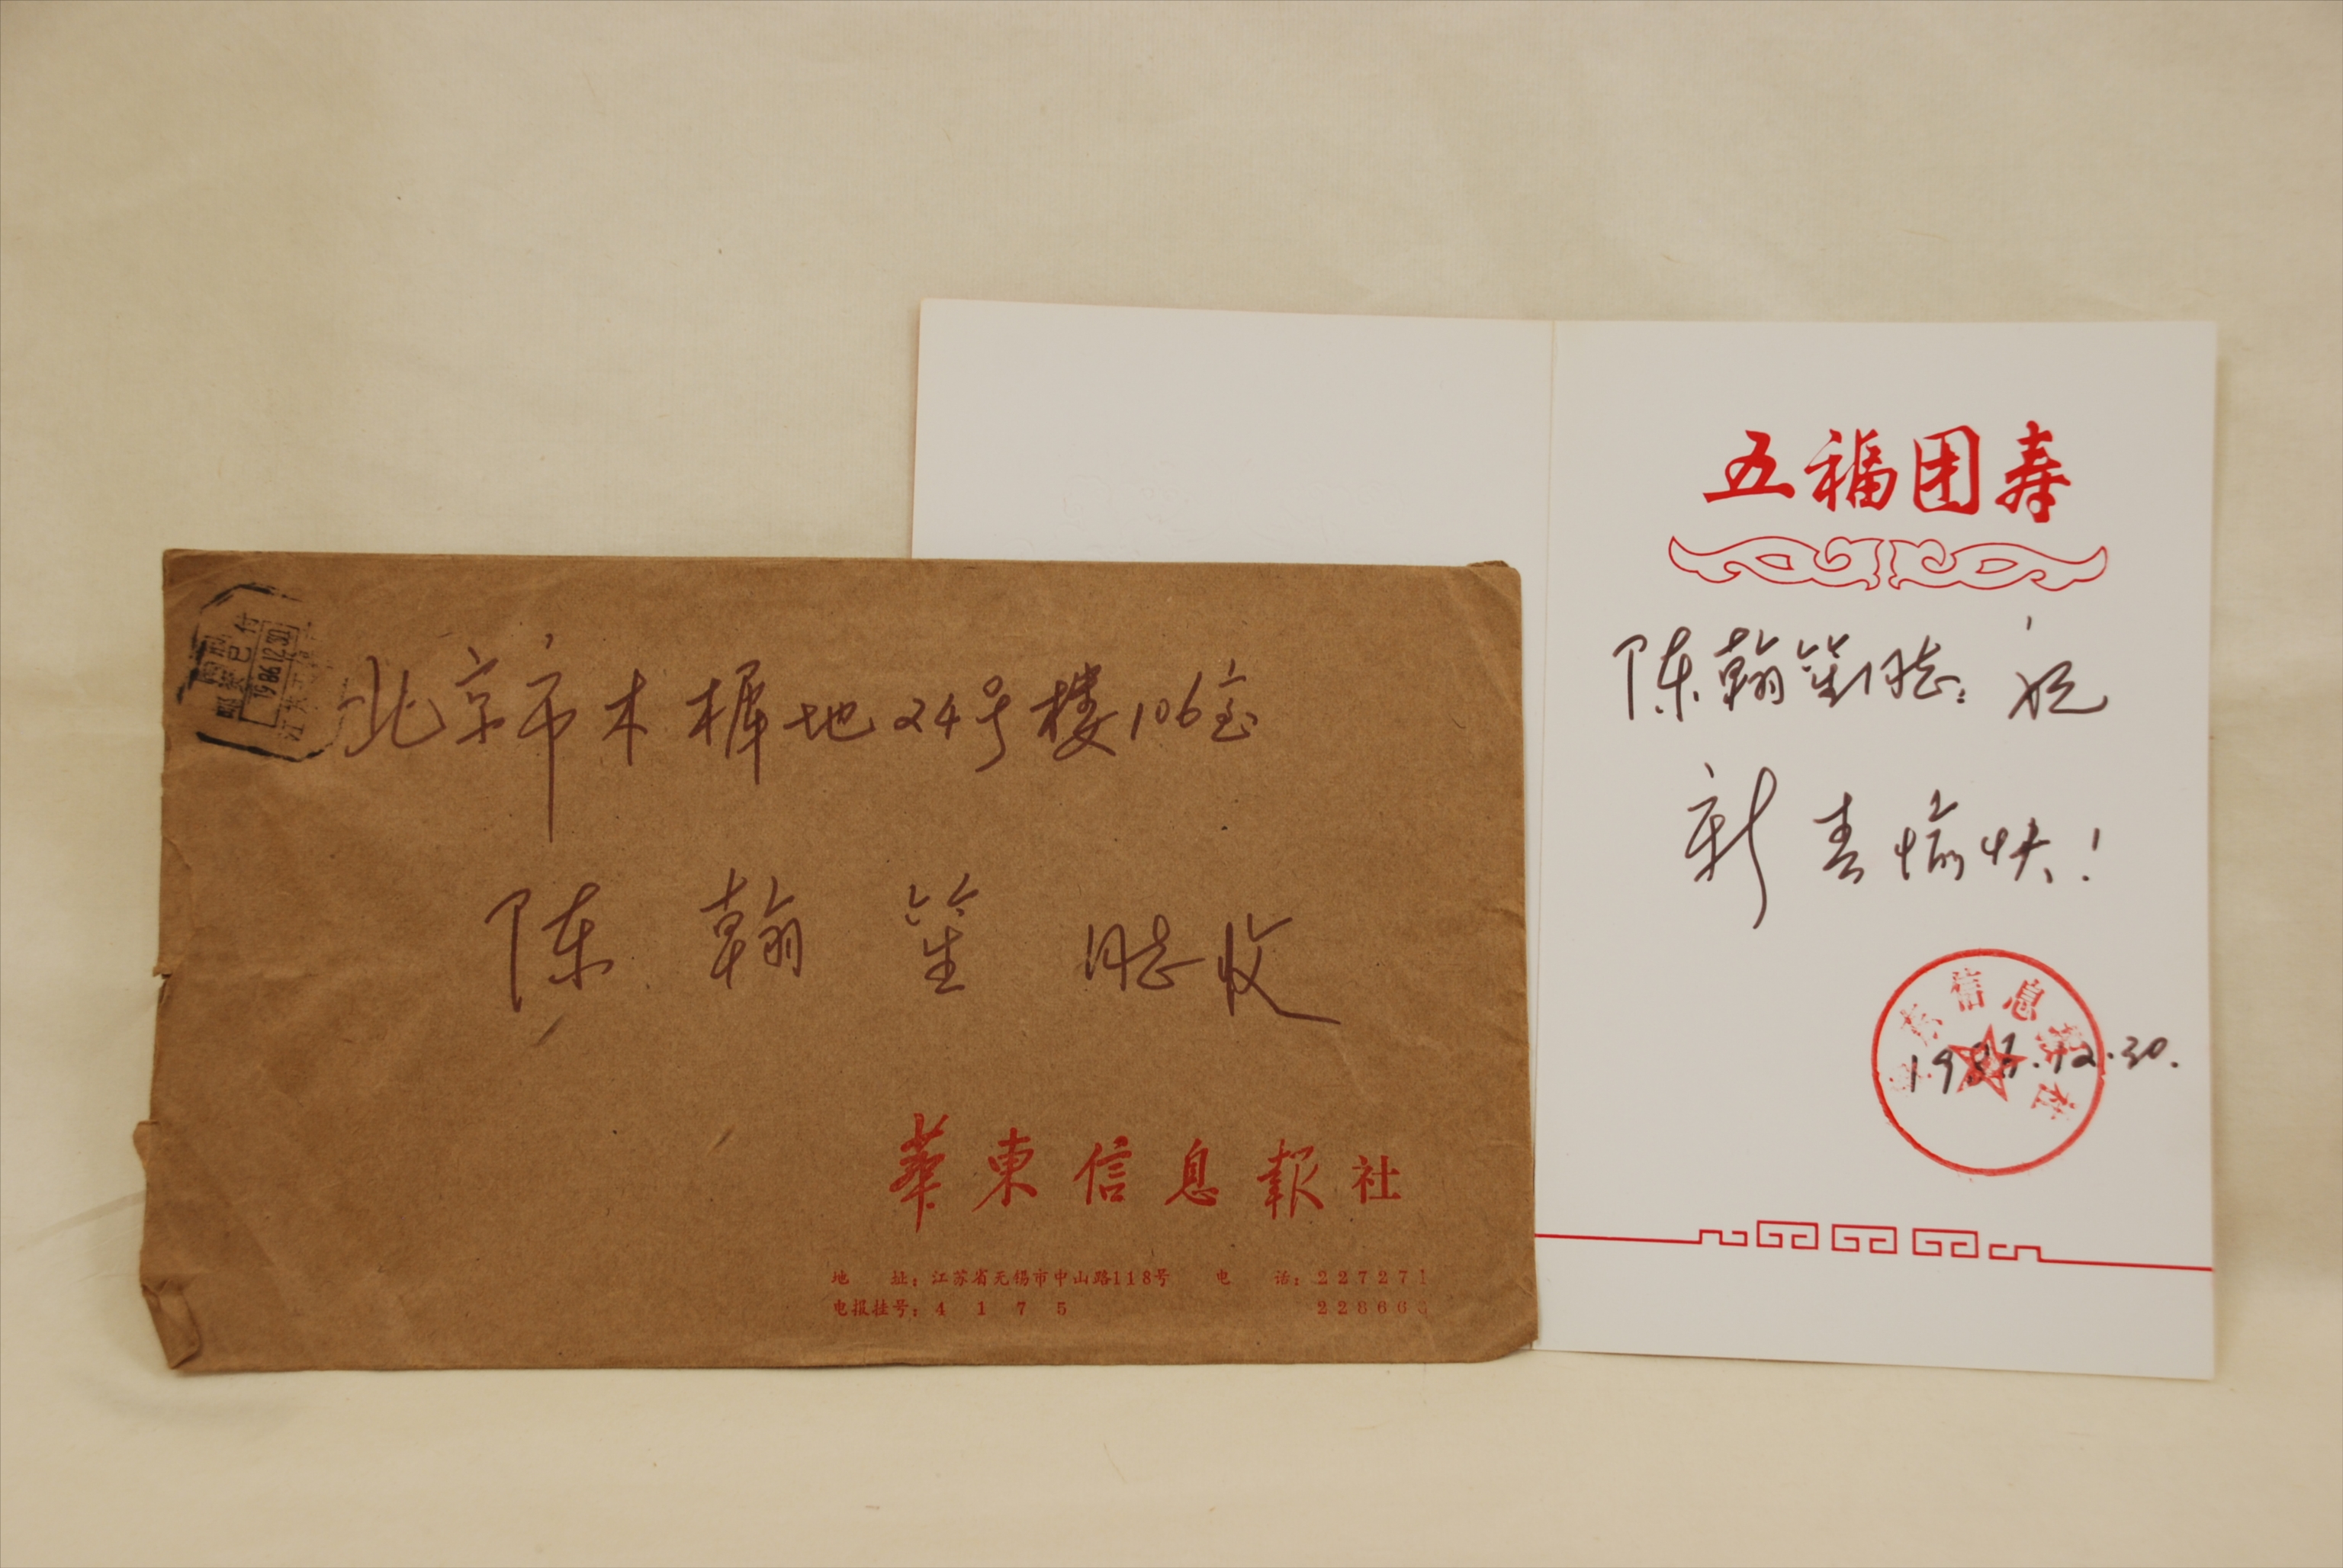 国内邮资已付
1986.12.30
北京市木樨地24号楼106室
陈翰笙同志收
華東信息報社
地 址：江苏省无锡市中山路118号 电 话：227271
电报挂号：4175 228666
五福团寿
陈翰笙同志：祝
新春愉快！
华东信息报社
1986.12.30.